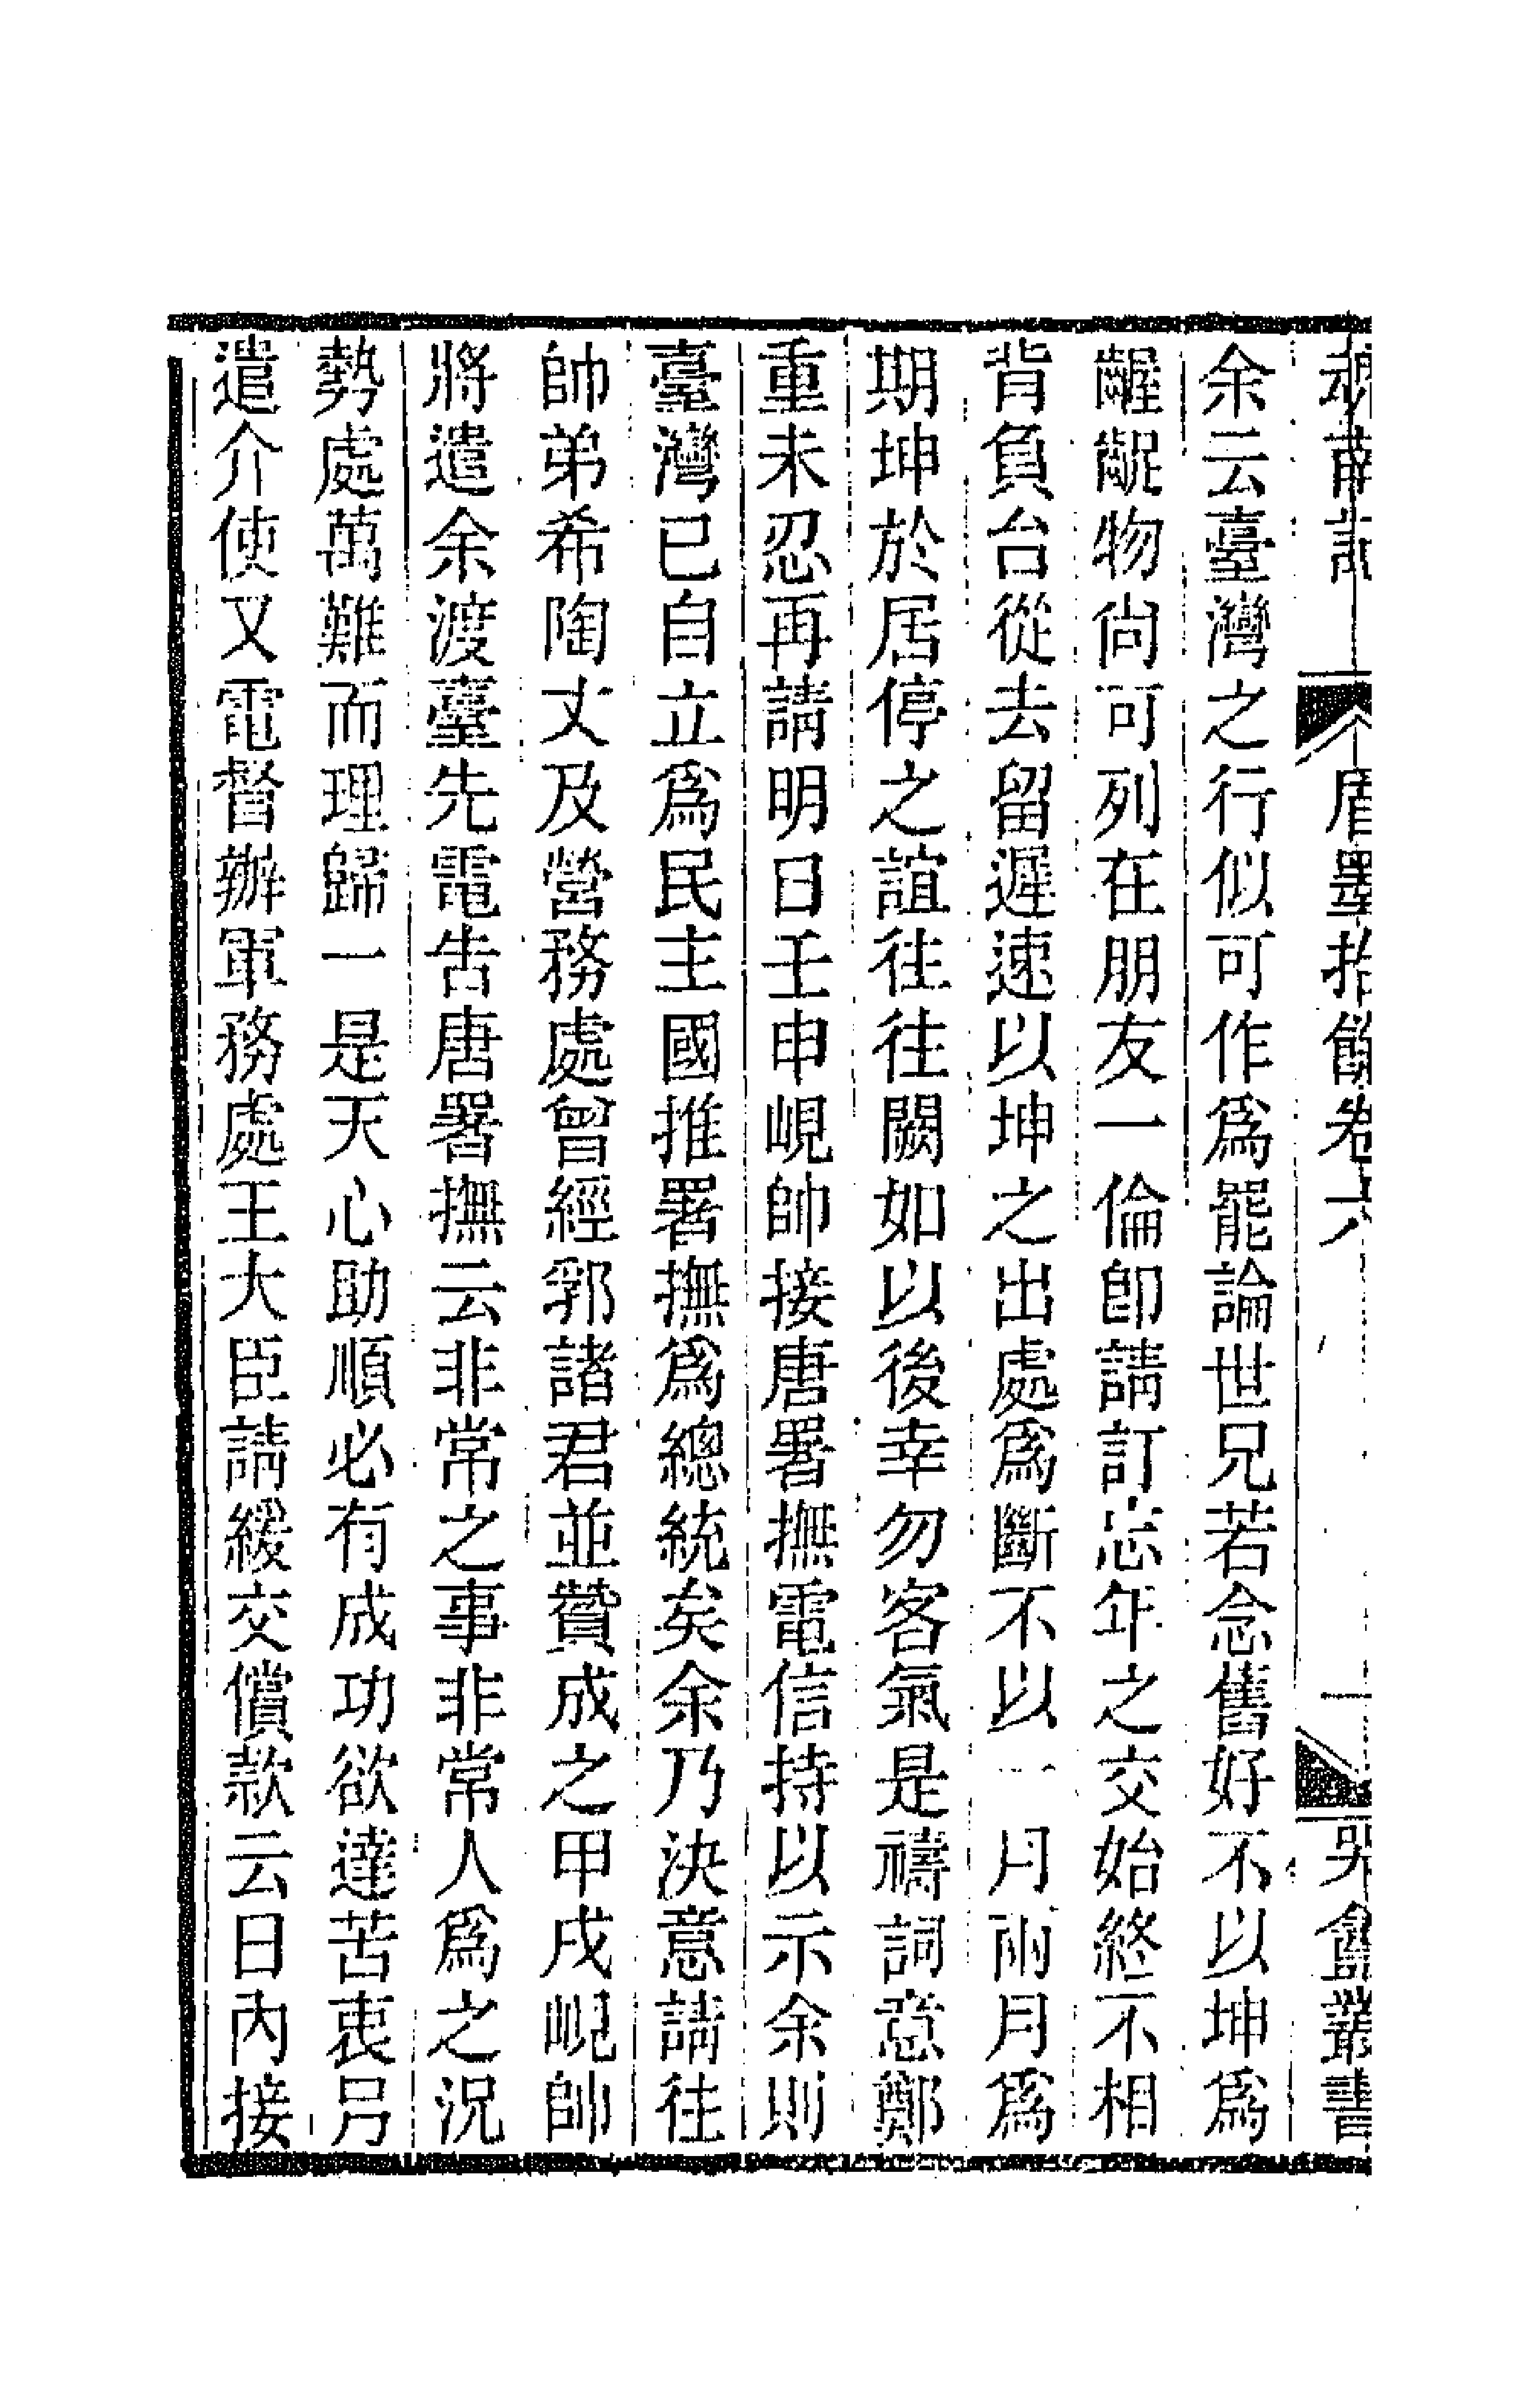 魂南記 盾墨拾餘卷六 一 哭盦叢書
余云臺灣之行似可作爲罷論世兄若念舊好不以坤爲
齷齪物尙可列在朋友一倫卽請訂忘年之交始終不相
背負台從去留遲速以坤之出處爲斷不以一月兩月爲
期坤於居停之誼往往闕如以後幸勿客氣是禱詞意鄭
重未忍再請明日壬申峴帥接唐署撫電信持以示余則
臺灣已自立爲民主國推署撫爲總統矣余乃決意請往
帥弟希陶丈及營務處曾經郛諸君並贊成之甲戌峴帥
將遣余渡臺先電告唐署撫云非常之事非常人爲之況
勢處萬難而理歸一是天心助順必有成功欲達苦衷另
遣介使又電督辦軍務處王大臣請緩交償款云日內接